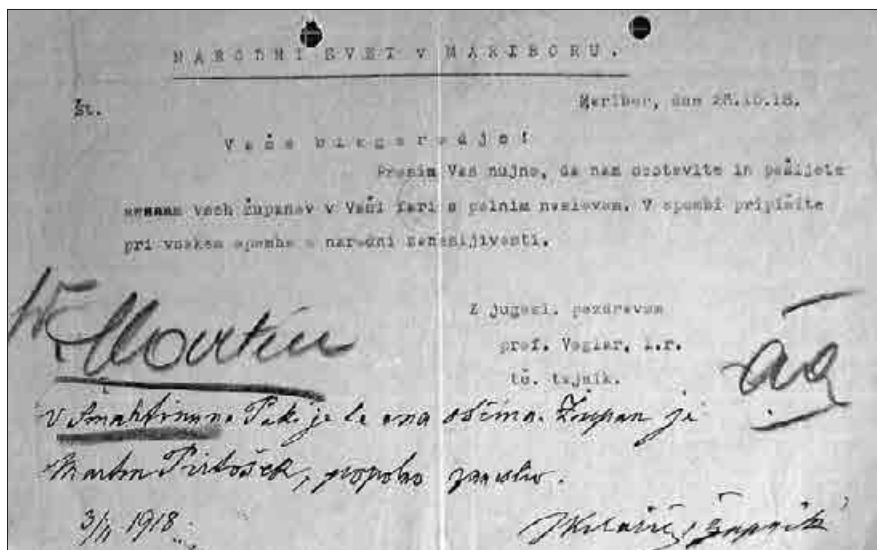 NARODNI SVET V MARIBORU.
Št. Maribor, dne 28.10.18.
Vaše blagorodje!
Prosim Vas nujno, da nam sestavite in pošljete
seznam vseh županov v Vaši fari s polnim naslovom. V opombi pripišite
pri vsakem opombo o narodni zanesljivosti.
Z jugosl. pozdravom
prof. Voglar, l.r.
tč. tajnik.
Martin
aa
V Šmartinu na Paki je le ena občina. Župan je
Martin Pirtošek, popolno
3/11 1918